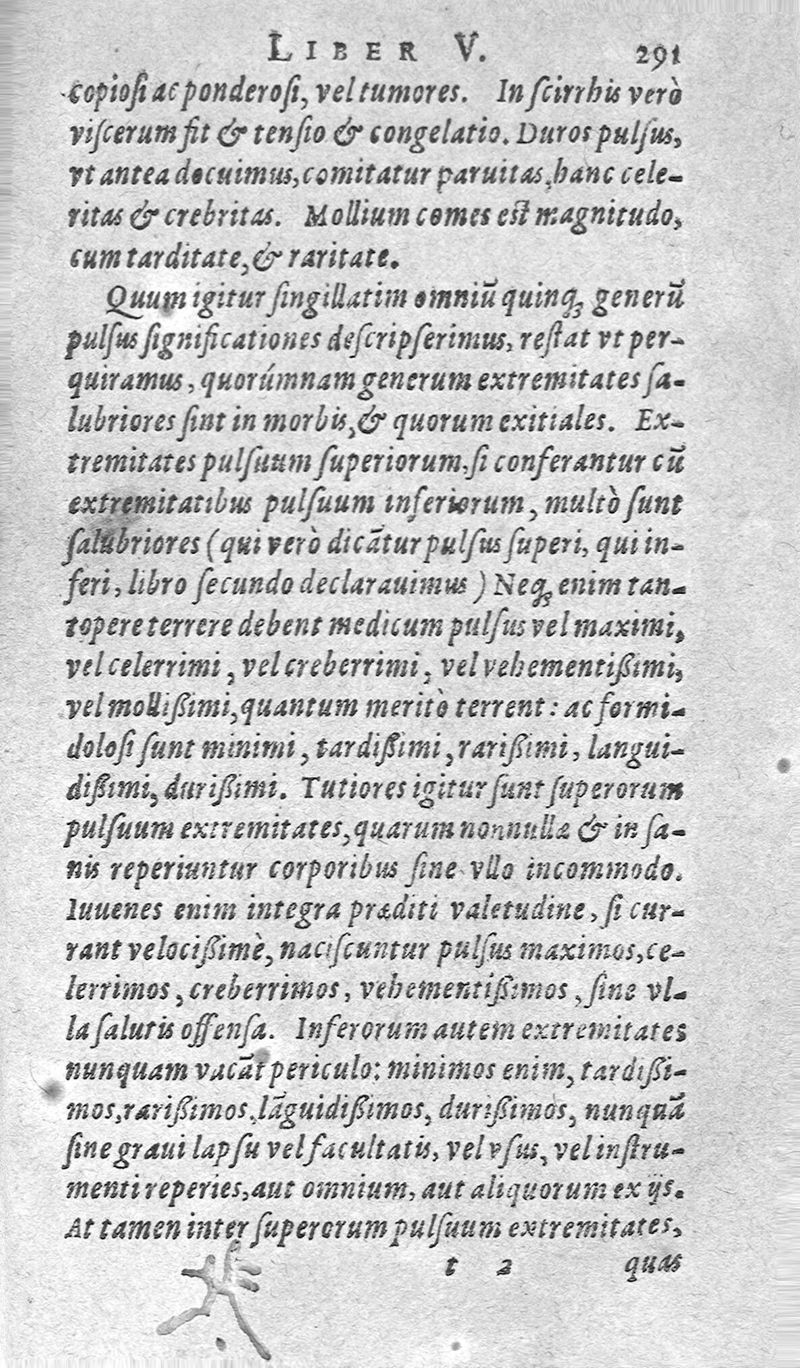 LIBER V. 291
copiosi ac ponderosi, vel tumores. In scirrhis verò
viscerum fit & tensio & congelatio. Duros pulsus,
vt antea docuimus, comitatur paruitas, hanc cele-
ritas & crebritas. Mollium comes est magnitudo,
cum tarditate, & raritate.
Quum igitur singillatim omniũ quinq; generũ
pulsus significationes descripserimus, restat vt per-
quiramus, quorúmnam generum extremitates sa-
lubriores sint in morbis, & quorum exitiales. Ex-
tremitates pulsuum superiorum, si conferantur cũ
extremitatibus pulsuum inferiorum, multò sunt
salubriores (qui verò dicãtur pulsus superi, qui in-
feri, libro secundo declarauimus) Neq; enim tan-
topere terrere debent medicum pulsus vel maximi,
vel celerrimi, vel creberrimi, vel vehementißimi,
vel mollißimi, quantum meritò terrent: ac formi-
dolosi sunt minimi, tardißimi, rarißimi, langui-
dißimi, durißimi. Tutiores igitur sunt superorum
pulsuum extremitates, quarum nonnullæ & in sa-
nis reperiuntur corporibus sine vllo incommodo.
Iuuenes enim integra præditi valetudine, si cur-
rant velocißimè, naciscuntur pulsus maximos, ce-
lerrimos, creberrimos, vehementißimos, sine vl-
la salutis offensa. Inferorum autem extremitates
nunquam vacãt periculo: minimos enim, tardißi-
mos, rarißimos, lãguidißimos, durißimos, nunquã
sine graui lapsu vel facultatis, vel vsus, vel instru-
menti reperies, aut omnium, aut aliquorum ex ijs.
At tamen inter superorum pulsuum extremitates,
t 2 quas